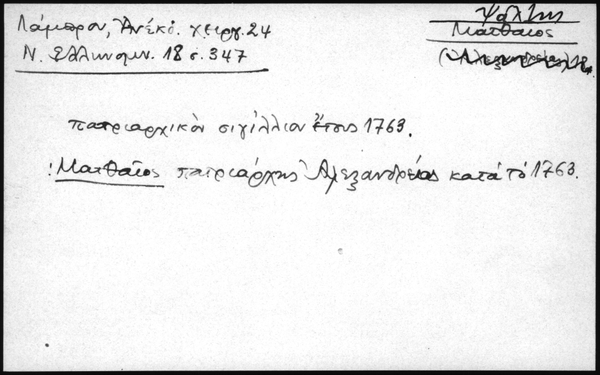 Λάμπρου, Ἀνέκδ. χειργ. 24
Ν. Ἑλληνομν. 18 σ. 347
Ψάλτης
Ματθαῖος
πατριαρχικὸν σιγίλλιον ἔτους 1763.
: Ματθαῖος πατριάρχης Ἀλεξανδρείας κατὰ τὸ 1763.